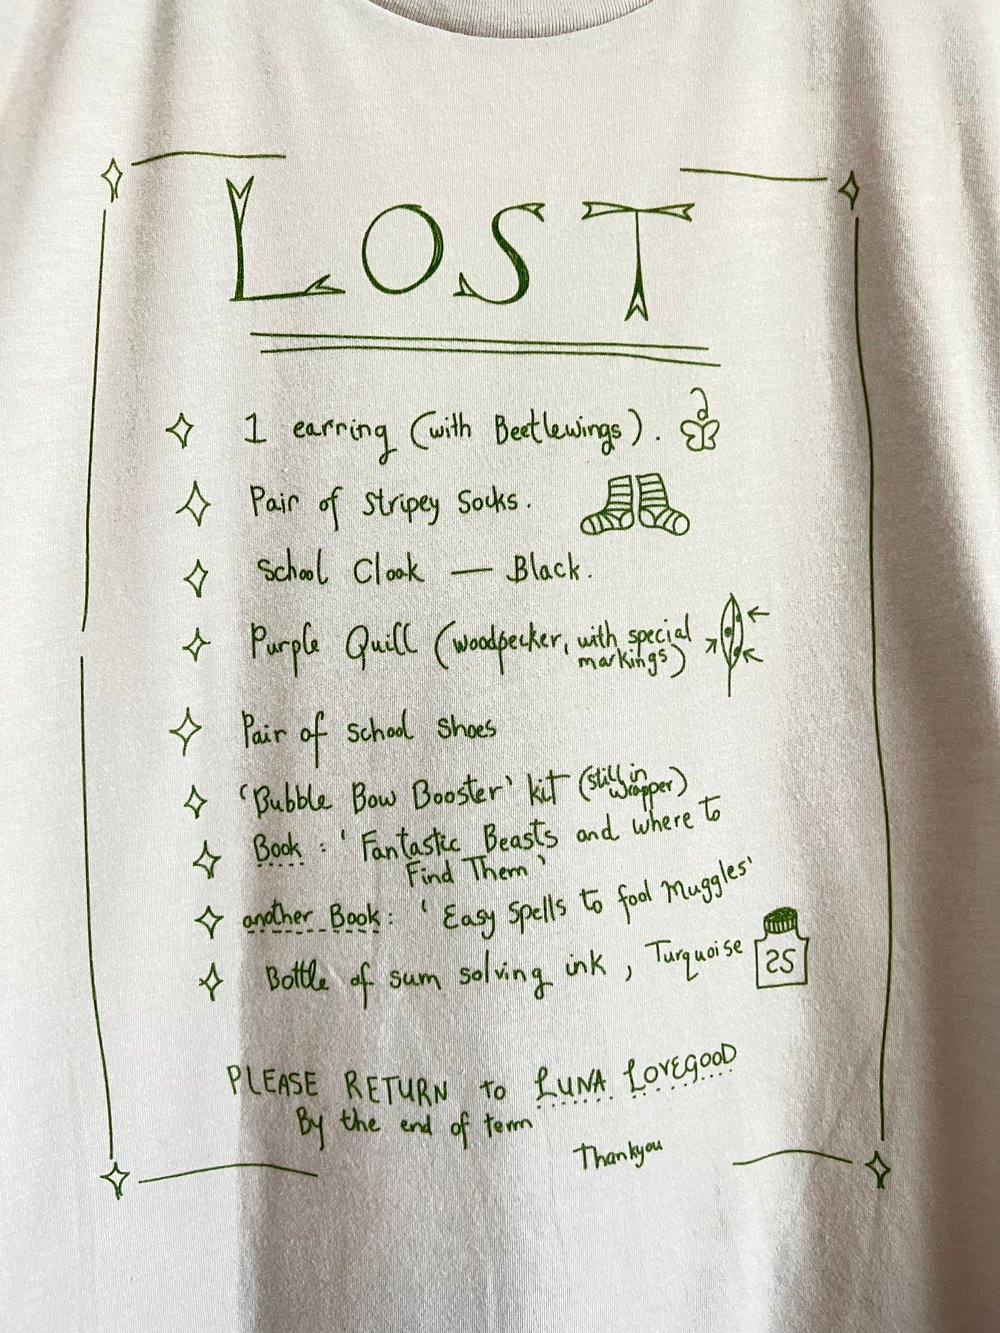 LOST
1 earring (with Beetlewings).
Pair of Stripey Socks.
School Cloak — Black.
Purple Quill (woodpecker, with special
markings)
Pair of School Shoes
'Bubble Bow Booster' kit (still in
wrapper)
Book: 'Fantastic Beasts and where to
Find Them'
another Book: 'Easy Spells to fool Muggles'
Bottle of sum solving ink, Turquoise
2S
PLEASE RETURN to LUNA LOVEGOOD
By the end of term
Thankyou